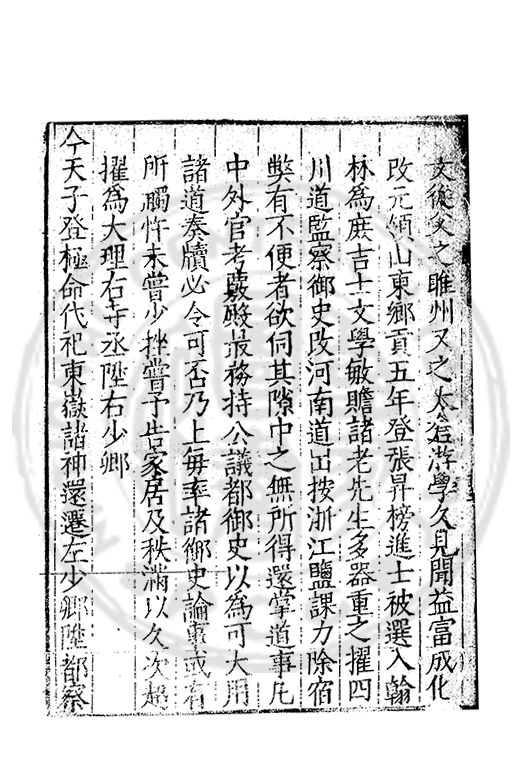 文從父之睢州又之太倉游學久見聞益富成化
改元領山東鄉貢五年登張昇榜進士被選入翰
林為庶吉士文學敏贍諸老先生多器重之擢四
川道監察御史改河南道出按浙江鹽課力除宿
弊有不便者欲伺其隙中之無所得還掌道事凡
中外官考覈殿最務持公議都御史以為可大用
諸道奏牘必令可否乃上每率諸御史論事或有
所觸忤未嘗少挫嘗予告家居及秩滿以久次超
擢為大理右寺丞陞右少卿
今天子登極命代祀東嶽諸神還遷左少卿陞都察